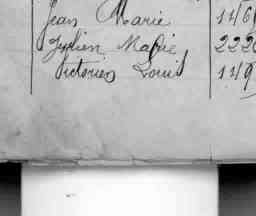 Jean Marie 1161
Julien Marie 2220
Victorien Louis 1197